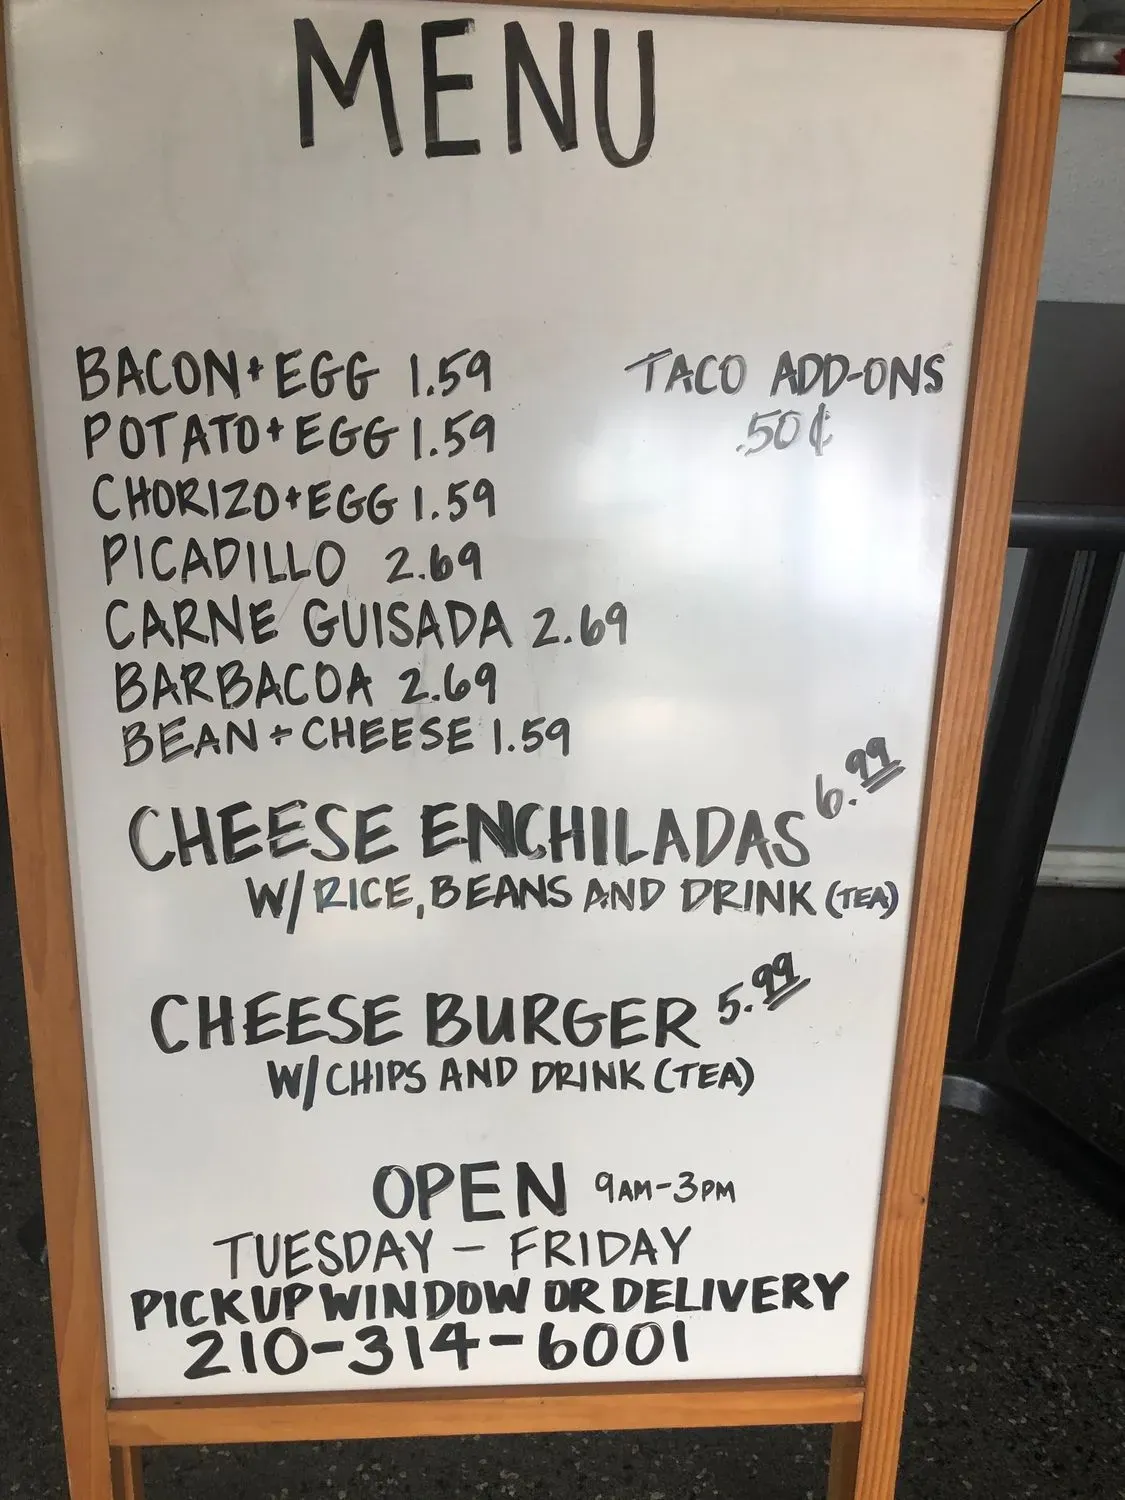 MENU
BACON+EGG 1.59
POTATO+EGG 1.59
CHORIZO+EGG 1.59
PICADILLO 2.69
CARNE GUISADA 2.69
BARBACOA 2.69
BEAN+CHEESE 1.59
TACO ADD-ONS
.50¢
CHEESE ENCHILADAS 6.99
W/RICE, BEANS AND DRINK (TEA)
CHEESE BURGER 5.99
W/CHIPS AND DRINK (TEA)
OPEN 9AM-3PM
TUESDAY - FRIDAY
PICKUP WINDOW OR DELIVERY
210-314-6001